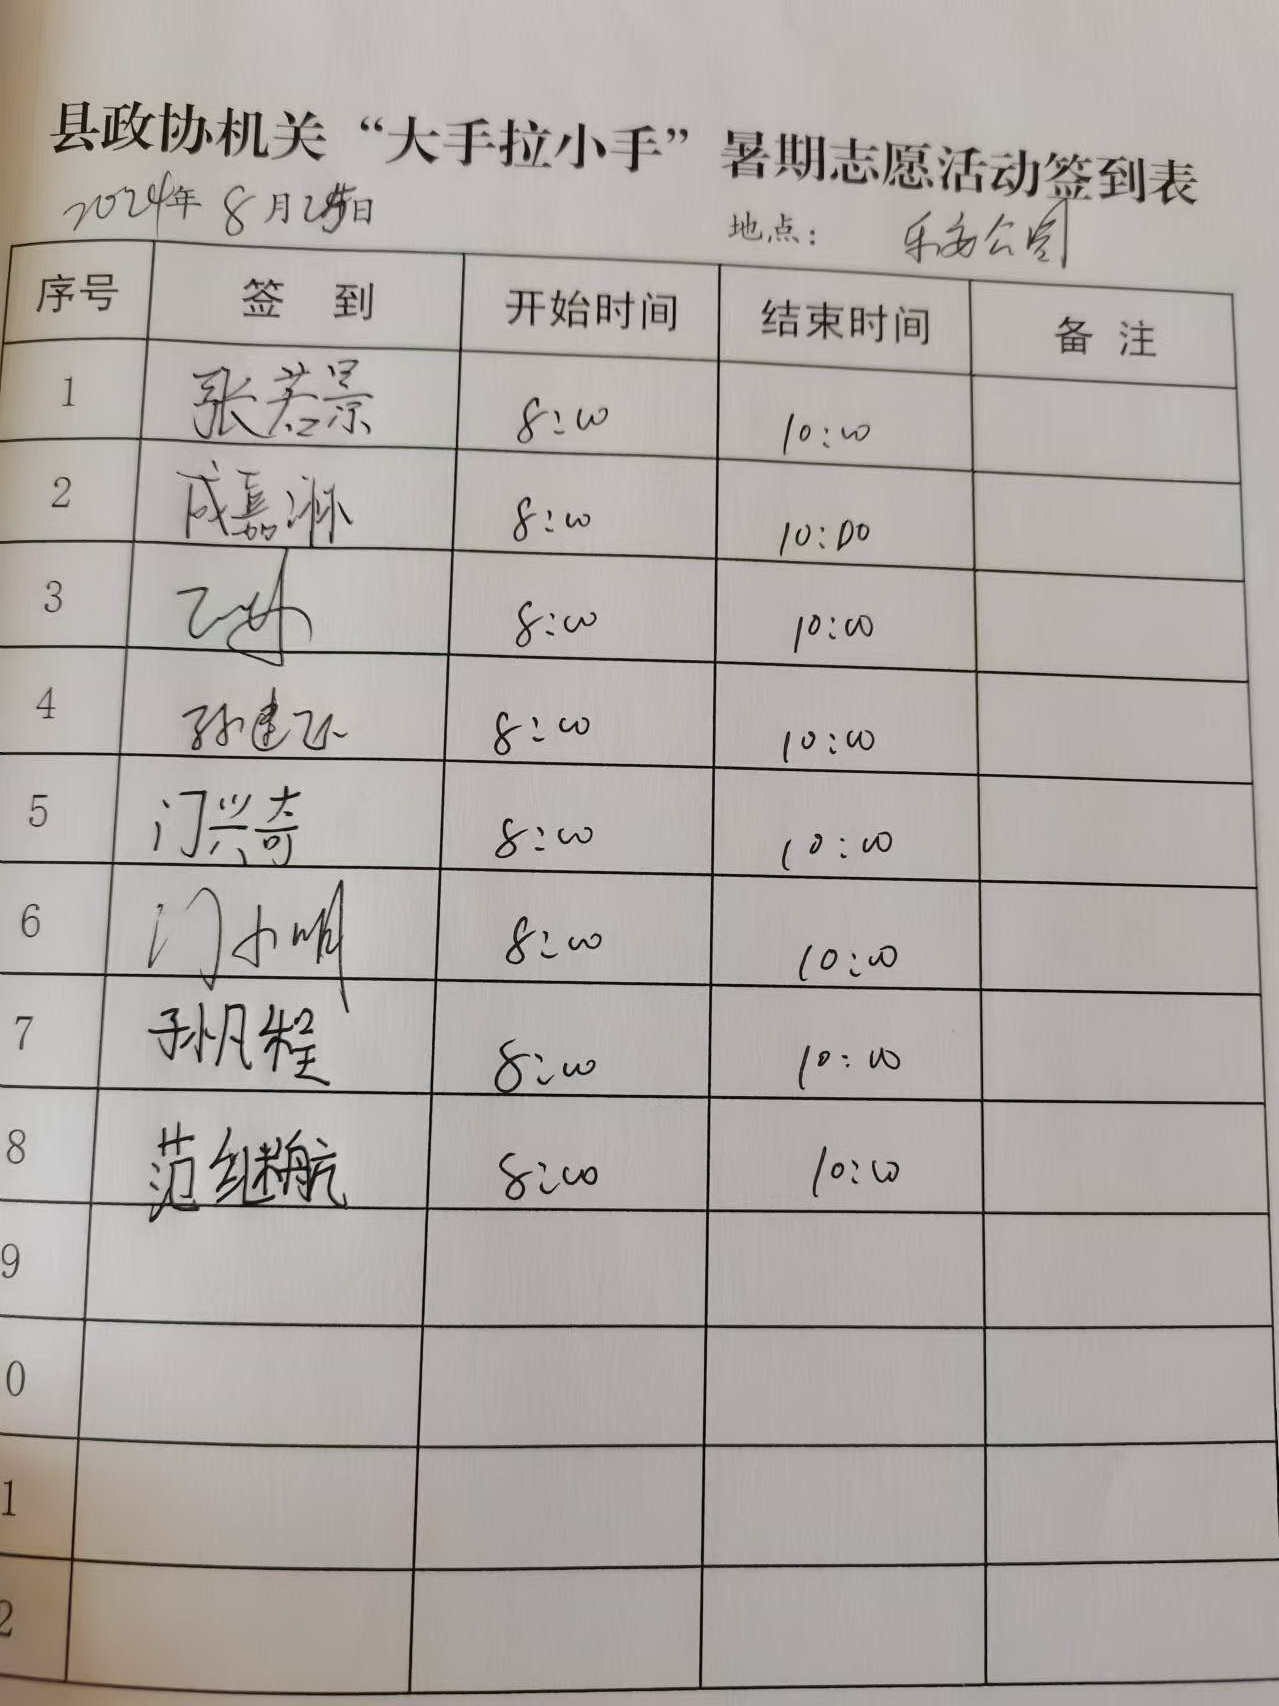 县政协机关“大手拉小手”暑期志愿活动签到表
2024年 8月25日 地点： 乐安公司
序号 签 到 开始时间 结束时间 备 注
1 张若景 8:00 10:00
2 成嘉淋 8:00 10:00
3 8:00 10:00
4 孙建飞 8:00 10:00
5 门兴奇 8:00 10:00
6 门小明 8:00 10:00
7 孙凡程 8:00 10:00
8 范继航 8:00 10:00
9
0
1
2